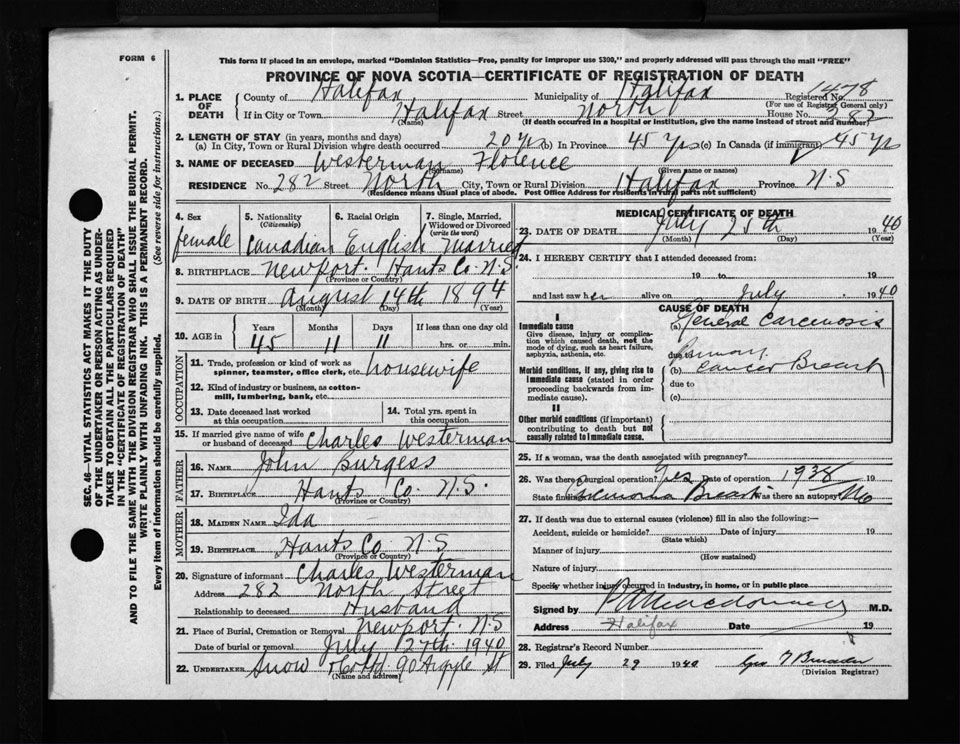 FORM 6
This form if placed in an envelope, marked "Dominion Statistics—Free, penalty for improper use $300," and properly addressed will pass through the mail "FREE"
PROVINCE OF NOVA SCOTIA—CERTIFICATE OF REGISTRATION OF DEATH
1478
1. PLACE OF DEATH
County of Halifax Municipality of Halifax Registered No.
(For use of Registrar General only)
If in City or Town Halifax Street North House No. 282
(Name) (If death occurred in a hospital or institution, give the name instead of street and number)
2. LENGTH OF STAY (in years, months and days)
(a) In City, Town or Rural Division where death occurred 20 yrs (b) In Province 45 yrs (c) In Canada (if immigrant) 45 yrs
3. NAME OF DECEASED Westerman Florence
(Surname) (Given name or names)
RESIDENCE No. 282 Street North City, Town or Rural Division Halifax Province N.S
(Residence means usual place of abode. Post Office Address for residents in rural parts not sufficient)
4. Sex female
5. Nationality (Citizenship) Canadian
6. Racial Origin English
7. Single, Married, Widowed or Divorced (write the word) Married
8. BIRTHPLACE Newport. Hants Co. N.S.
(Province or Country)
9. DATE OF BIRTH August 14th 1894
(Month) (Day) (Year)
10. AGE in Years Months Days If less than one day old
45 11 11 hrs. or min.
OCCUPATION
11. Trade, profession or kind of work as spinner, teamster, office clerk, etc. housewife
12. Kind of industry or business, as cotton-mill, lumbering, bank, etc.
13. Date deceased last worked at this occupation
14. Total yrs. spent in this occupation
15. If married give name of wife or husband of deceased Charles Westerman
FATHER
16. NAME John Burgess
17. BIRTHPLACE Hants Co. N.S.
(Province or Country)
MOTHER
18. MAIDEN NAME Ida
19. BIRTHPLACE Hants Co N.S
(Province or Country)
20. Signature of informant Charles Westerman
Address 282 North Street
Relationship to deceased Husband
21. Place of Burial, Cremation or Removal Newport. N.S
Date of burial or removal July 27th 1940
22. UNDERTAKER Snow & Co Ltd 90 Argyle St
(Name and address)
MEDICAL CERTIFICATE OF DEATH
23. DATE OF DEATH July 25th 1940
(Month) (Day) (Year)
24. I HEREBY CERTIFY that I attended deceased from:
19 to 19
and last saw her alive on July 1940
CAUSE OF DEATH
I
Immediate cause
Give disease, injury or complication which caused death, not the mode of dying, such as heart failure, asphyxia, asthenia, etc.
(a) General Carcinosis
due to Primary
Morbid conditions, if any, giving rise to immediate cause (stated in order proceeding backwards from immediate cause).
(b) Cancer Breast
due to
(c)
II
Other morbid conditions (if important) contributing to death but not causally related to immediate cause.
25. If a woman, was the death associated with pregnancy?
26. Was there a surgical operation? Yes Date of operation 1938
State findings Breast Was there an autopsy? No
27. If death was due to external causes (violence) fill in also the following:—
Accident, suicide or homicide? Date of injury 19
(State which)
Manner of injury
(How sustained)
Nature of injury
Specify whether injury occurred in industry, in home, or in public place
Signed by Macdonald M.D.
Address Halifax Date 19
28. Registrar's Record Number
29. Filed July 29 1940
(Division Registrar)
SEC. 46—VITAL STATISTICS ACT MAKES IT THE DUTY
OF THE UNDERTAKER OR PERSON ACTING AS UNDER-
TAKER TO OBTAIN ALL THE PARTICULARS REQUIRED
IN THE "CERTIFICATE OF REGISTRATION OF DEATH"
AND TO FILE THE SAME WITH THE DIVISION REGISTRAR WHO SHALL ISSUE THE BURIAL PERMIT.
WRITE PLAINLY WITH UNFADING INK. THIS IS A PERMANENT RECORD.
Every item of information should be carefully supplied. (See reverse side for instructions.)